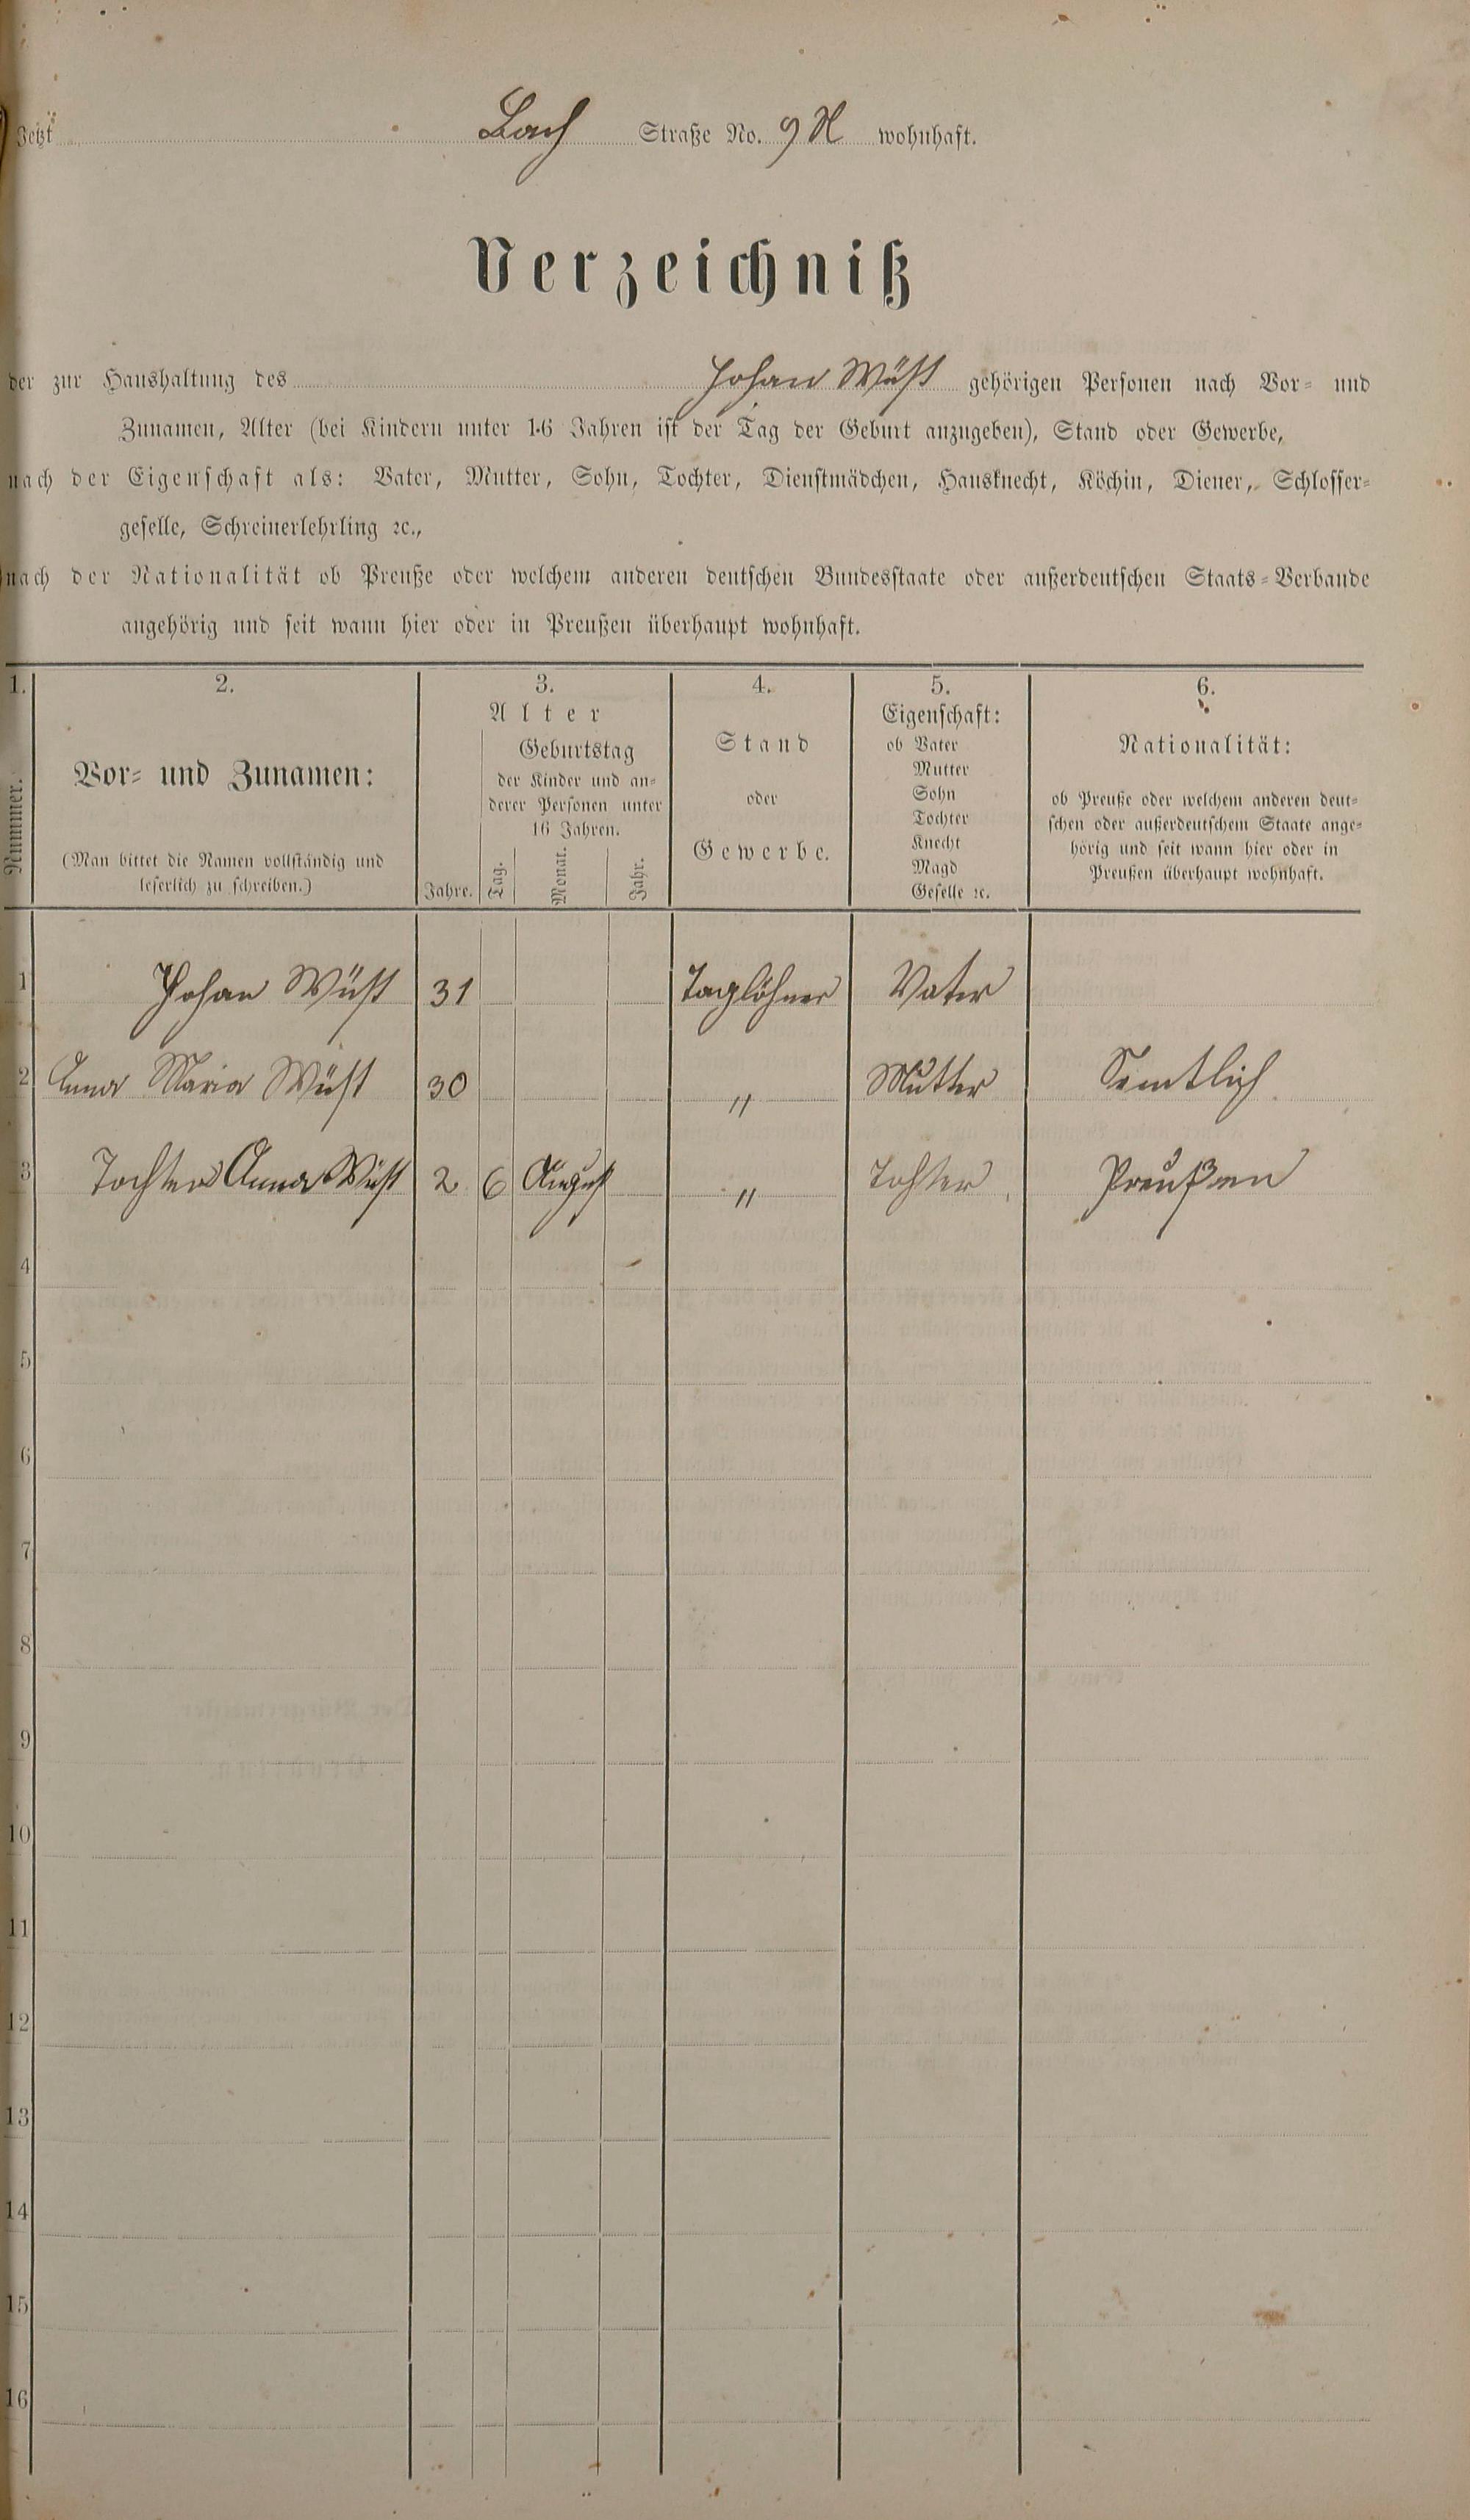 Jetzt Bach Straße No. 9 H wohnhaft.
Verzeichniß
der zur Haushaltung des Johan Wüst gehörigen Personen nach Vor- und
Zunamen, Alter (bei Kindern unter 16 Jahren ist der Tag der Geburt anzugeben), Stand oder Gewerbe,
nach der Eigenschaft als: Vater, Mutter, Sohn, Tochter, Dienstmädchen, Hausknecht, Köchin, Diener, Schlosser-
geselle, Schreinerlehrling ꝛc.,
nach der Nationalität ob Preuße oder welchem anderen deutschen Bundesstaate oder außerdeutschen Staats-Verbande
angehörig und seit wann hier oder in Preußen überhaupt wohnhaft.
1. 2. 3. 4. 5. 6.
Nummer.
Vor- und Zunamen:
(Man bittet die Namen vollständig und
leserlich zu schreiben.)
Alter
Jahre.
Geburtstag
der Kinder und an-
derer Personen unter
16 Jahren.
Tag. Monat. Jahr.
Stand
oder
Gewerbe.
Eigenschaft:
ob Vater
Mutter
Sohn
Tochter
Knecht
Magd
Geselle ꝛc.
Nationalität:
ob Preuße oder welchem anderen deut-
schen oder außerdeutschem Staate ange-
hörig und seit wann hier oder in
Preußen überhaupt wohnhaft.
1 Johan Wüst 31 Taglöhner Vater
2 Anna Maria Wüst 30 " Mutter Semtlich
3 Tochter Anna Wüst 2 6 August " Tohter Preußen
4
5
6
7
8
9
10
11
12
13
14
15
16